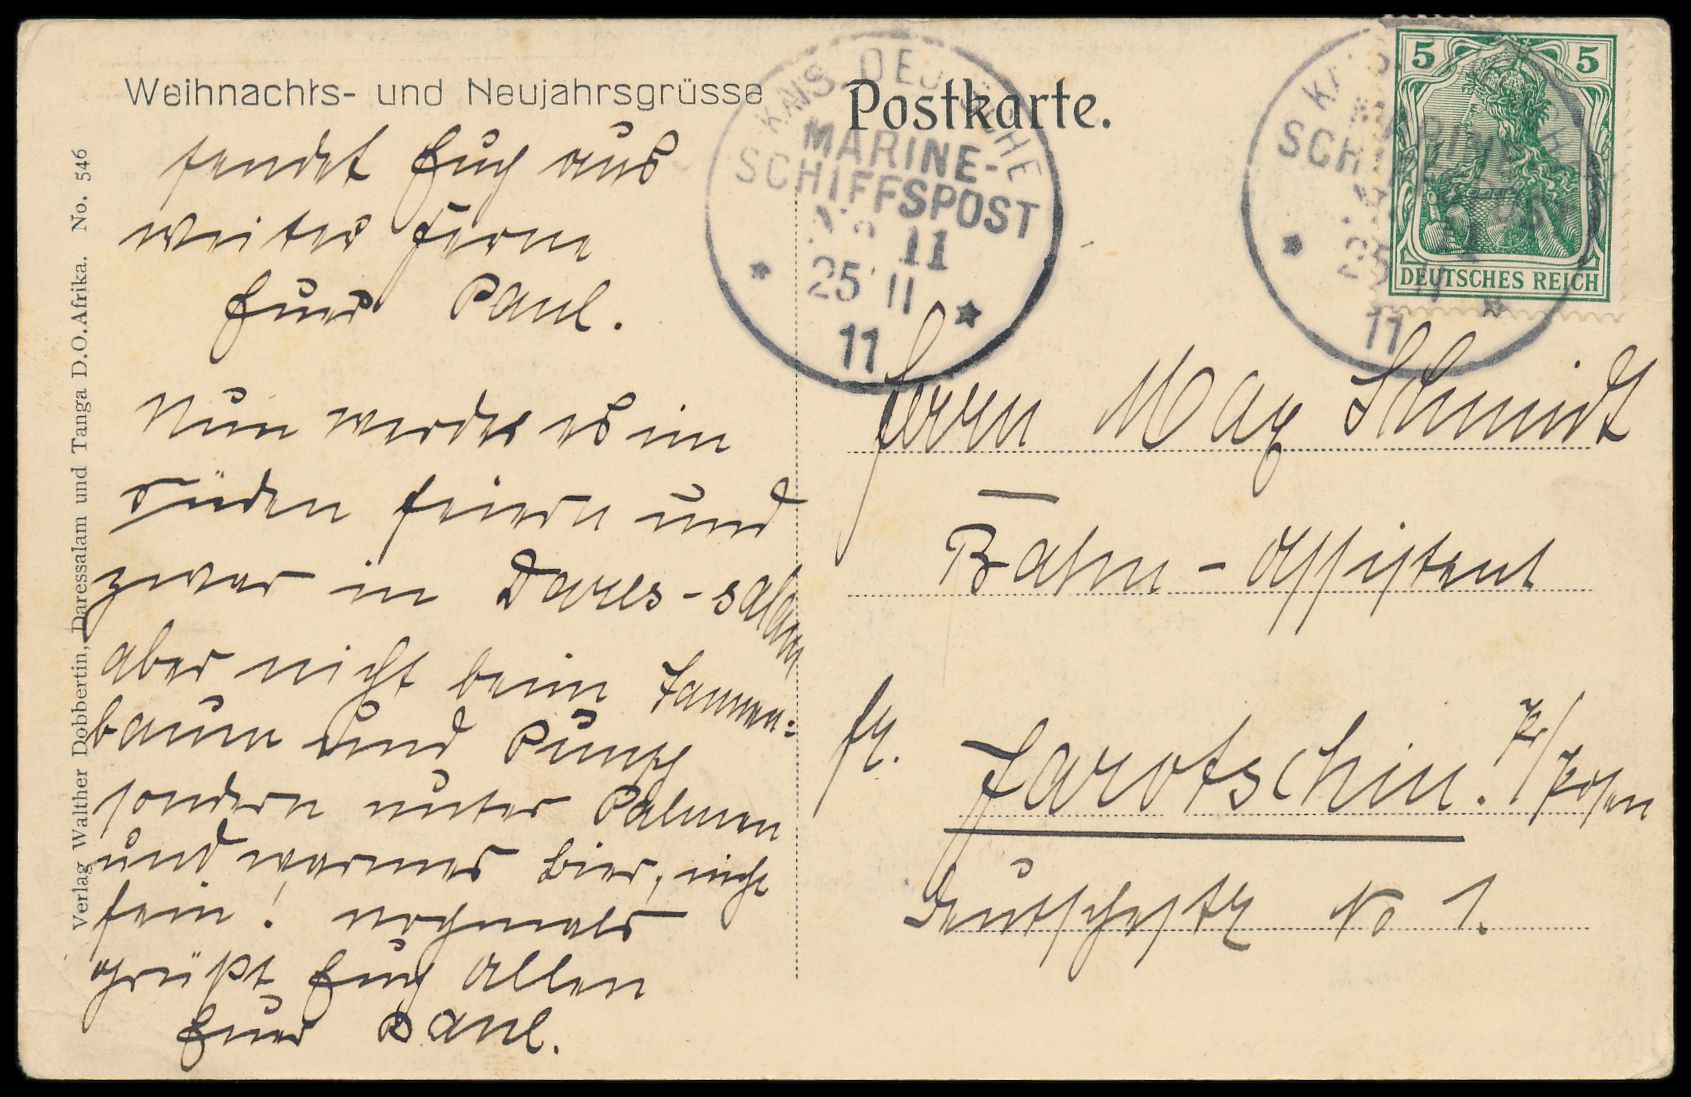 Weihnachts- und Neujahrsgrüsse
sendet Euch aus
weiter Ferne
Euer Paul.
Nun werde es im
Süden feiern und
zwar in Dares-salam
aber nicht beim Tannen=
baum und Punsch
sondern unter Palmen
und warmes Bier, nicht
fein! nochmals
grüßt Euch Allen
Euer Paul.
Verlag Walther Dobbertin, Daressalam und Tanga D.O.Afrika. No. 546
Postkarte.
KAIS. DEUTSCHE
MARINE-
SCHIFFSPOST
No 11
25 11
11
KAIS. DEUTSCHE
MARINE-
SCHIFFSPOST
No 11
25 11
11
5 5
DEUTSCHES REICH
Herrn Max Schmidt
Bahn-Assistent
Jarotschin. Pr/Posen
Deutschestr No 1.